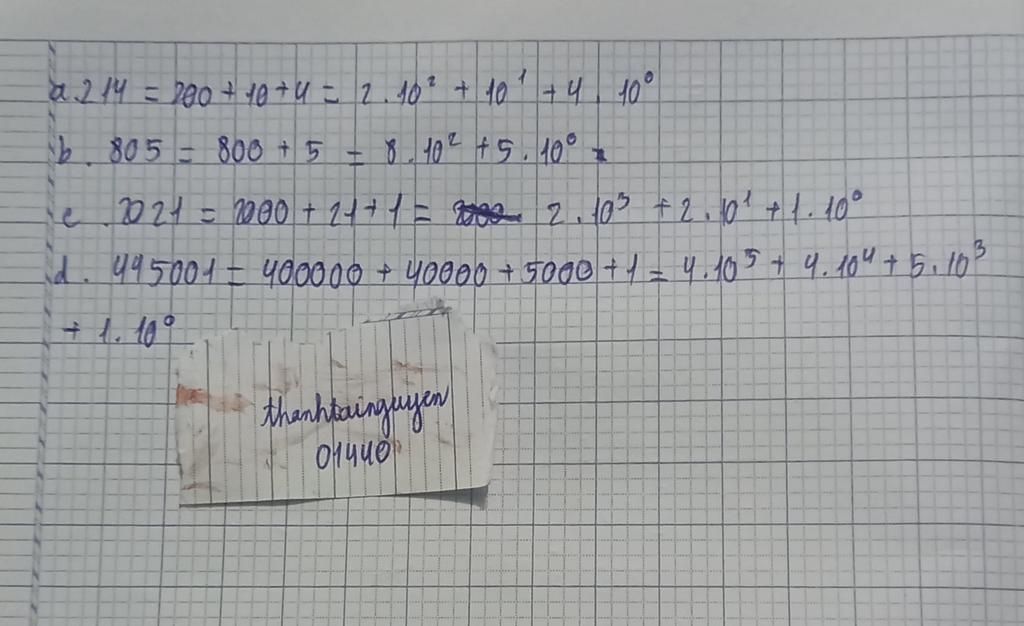 a. 214 = 200 + 10 + 4 = 2 . 10² + 10¹ + 4 . 10⁰
b. 805 = 800 + 5 = 8 . 10² + 5 . 10⁰
c. 2021 = 2000 + 21 + 1 = 2 . 10³ + 2 . 10¹ + 1 . 10⁰
d. 445001 = 400000 + 40000 + 5000 + 1 = 4 . 10⁵ + 4 . 10⁴ + 5 . 10³
+ 1 . 10⁰
thanhtainguyen
01440